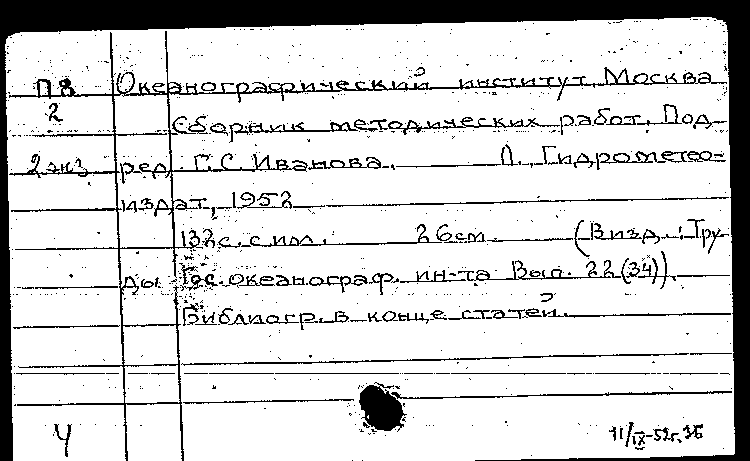 П8 Океанографический институт, Москва
2
Сборник методических работ. Под
2 экз ред. Г.С. Иванова. Л., Гидрометео-
издат, 1952
132 с. с илл. 26 см. (В изд.: Тру
ды Гос. океанограф. ин-та Вып. 22(34)).
Библиогр. в конце статей.
Ч 11/IX-52г.